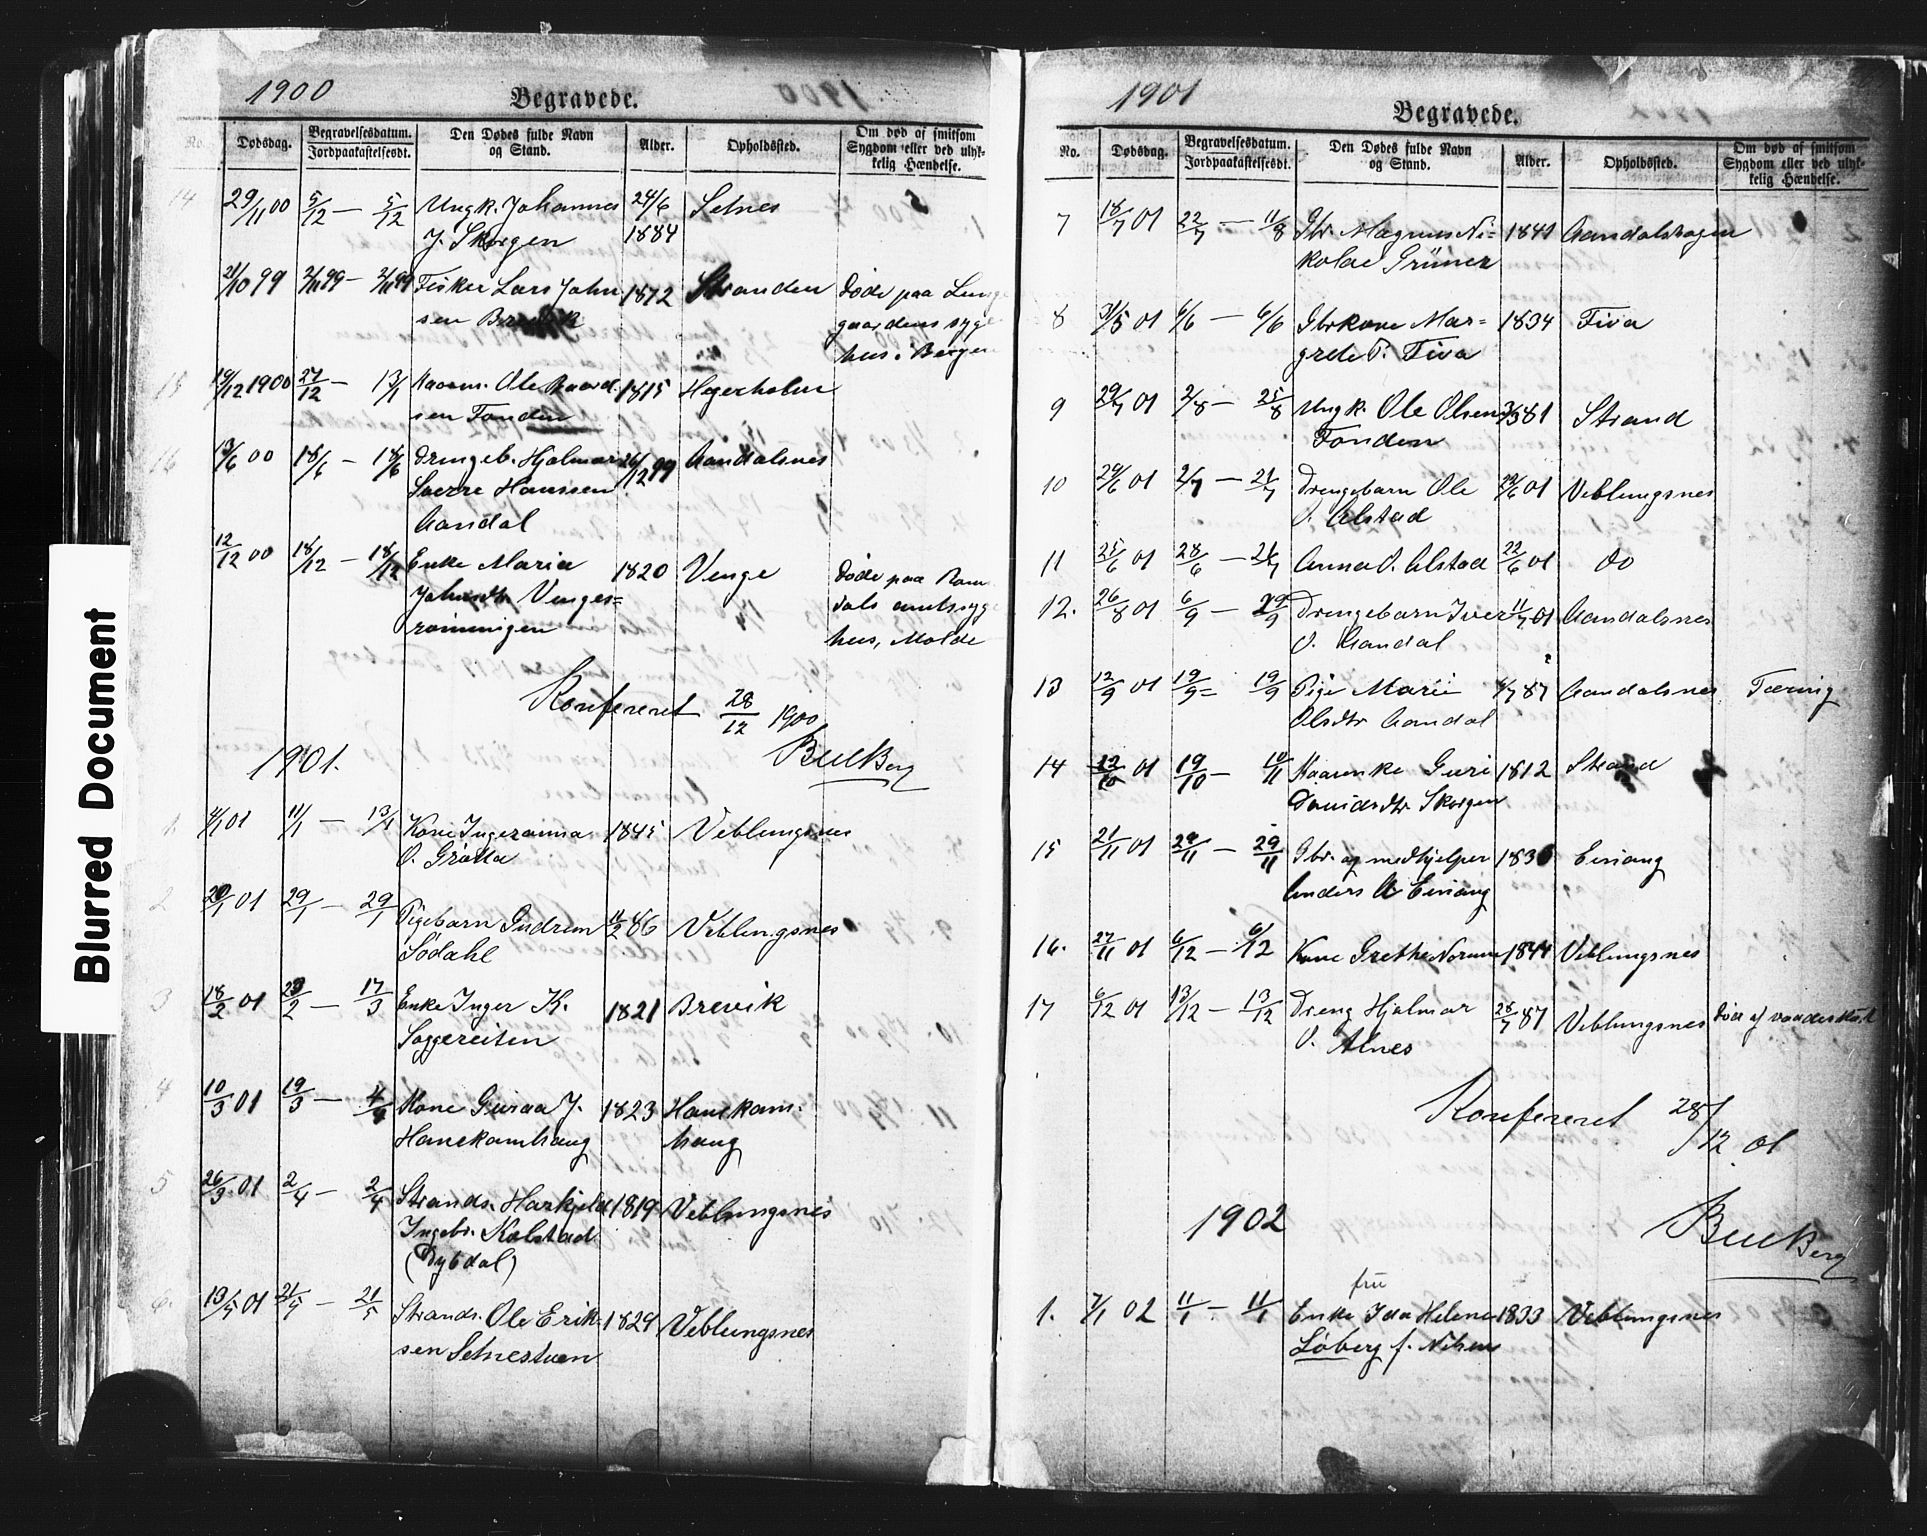 Blurred Document
1900
Begravede.
1900
No.
Dødsdag.
Begravelsesdatum.
Jordpaakastelsesdt.
Den Dødes fulde Navn
og Stand.
Alder.
Opholdssted.
Om død af smitsom
Sygdom eller ved ulyk-
kelig Hændelse.
14 29/11 00 5/12 — 5/12 Ungk. Johannes 24/6 Setnes
J. Skorgen 1884
21/10 99 2/11 99 — 2/11 99 Fisker Lars John 1872 Stranden døde paa Lung
sen gaardens syg
hus i Bergen
15 19/12 1900 27/12 — 13/1 Kaarm. Ole Knud 1815 Hegerholen
sen Fonden
16 13/6 00 18/6 — 18/6 Drengeb. Hjalmar 26/12 99 Aandalsnes
Sverre Hanssen
Aandal
12/12 00 18/12 — 18/12 Enke Maria 1820 Venge døde paa Rom
Johnsdtr Venges=
dals amtssyg
hus, Molde
Konfereret 28/12 1900
Bull Berg
1901.
1. 4/1 01 11/1 — 13/1 Kone Ingeranna 1845 Veblungsnes
O. Grøtta
2 20/1 01 29/1 — 29/1 Pigebarn Gudrun 11/2 86 Veblungsnes
Sødahl
3 18/2 01 23/2 — 17/3 Enke Inger K. 1821 Brevik
Soggereiten
4 10/3 01 19/3 — Kone Guraa J. 1823 Hanekam-
Hanekamhaug haug
5 26/3 01 2/4 — 2/4 Strands. Harkjeld 1819 Veblungsnes
Ingebr. Kolstad
(Dybdal)
6. 13/5 01 21/5 — 21/5 Strands. Ole Erik- 1829 Veblungsnes
sen Setnestuen
1901
Begravede.
No.
Dødsdag.
Begravelsesdatum.
Jordpaakastelsesdt.
Den Dødes fulde Navn
og Stand.
Alder.
Opholdssted.
Om død af smitsom
Sygdom eller ved ulyk-
kelig Hændelse.
7 18/7 01 22/7 — 11/8 Gbr. Magnus Ni= 1841 Aandalshagen
kolae Grüner
8 31/5 01 6/6 — 6/6 Gbrkone Mar= 1834 Fiva
grete P. Fiva
9 29/7 01 2/8 — 25/8 Ungk. Ole Olsen 3/5 81 Strand
Fonden
10 29/6 01 2/7 — 21/7 Drengebarn Ole 22/6 01 Veblungsnes
O. Alstad
11 25/6 01 28/6 — 21/7 Anna O. Alstad 22/6 01 do
12. 26/8 01 6/9 — 29/9 Drengebarn Iver 11/7 01 Aandalsnes
O. Aandal
13 12/9 01 19/9 = 19/9 Pige Marie 4/7 87 Aandalsnes Tæring
Olsdtr Aandal
14 12/10 01 19/10 — 10/11 Kaarenke Guri 1812 Strand
Davidsdtr Skorgen
15 21/11 01 29/11 — 29/11 Gbr. og medhjelper 1836 Eiriang
Anders A Eiriang
16. 27/11 01 6/12 — 6/12 Kone Grethe Norum 1844 Veblungsnes
17 6/12 01 13/12 — 13/12 Dreng Hjalmar 28/7 87 Veblungsnes død af vaadeskud
O. Alnes
Konfereret 28/12 01
1902
Bull Berg
fru
1. 7/1 02 11/1 — 11/1 Enke Ida Helene 1833 Veblungsnes
Løberg f. Nilsen